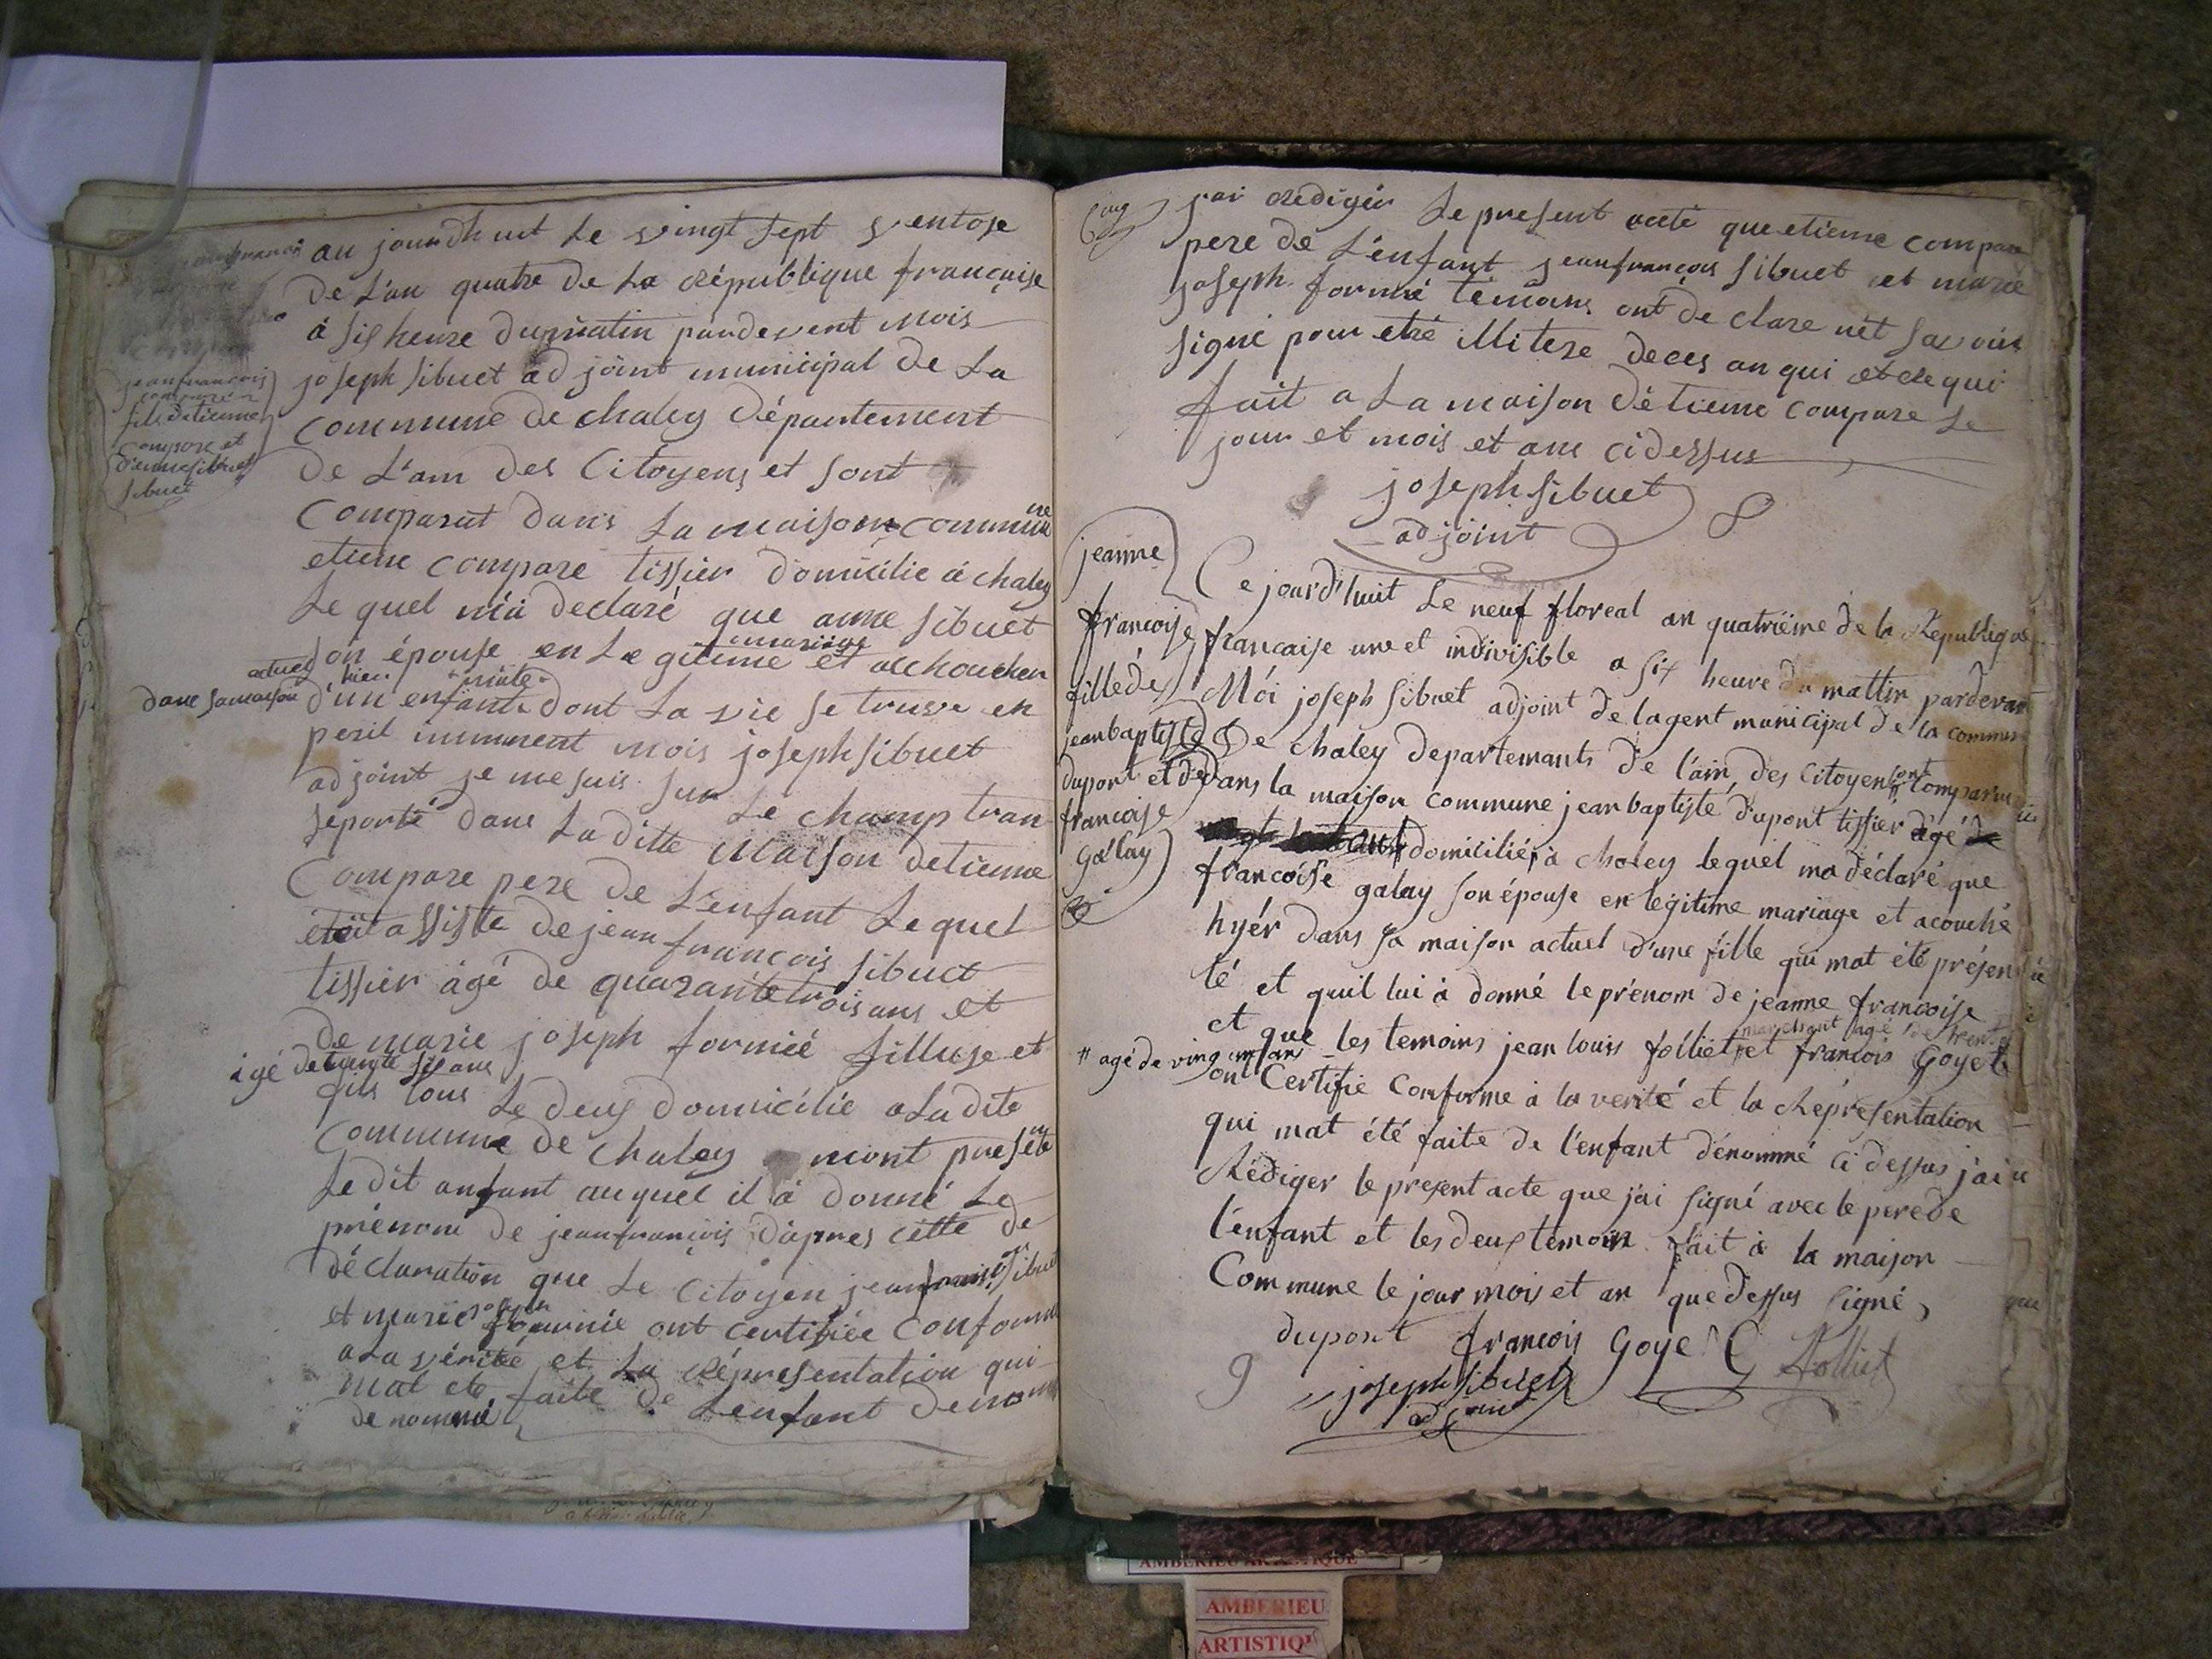 au jourdhuit Le vingt sept ventose
De L'an quatre de La république francaise
à six heure du matin pardevent Mois
joseph sibuet adjoint municipal de La
jeanfrancois
fils detienne
compare et
d'enne sibuet
sibuet
Commune de chaley Département
De L'ain des Citoyens et sont
Comparut dans La maison commune
etiene compare tissier domicilie à chaley
Le quel m'à declaré que anne sibuet
son épouse en Legitime mariage et acchoucher
actuel hier
dans sa maison d'un enfant mâle dont La vie se truve en
peril imminent mois joseph sibuet
adjoint je me suis sur Le champ tran
seporté dans La ditte maison detienne
Compare pere de L'enfant Le quel
étoit assiste de jean francois sibuet
tissier âgé de quarante trois ans et
De marie joseph formié filluse et
âgé de trante six ans
tous Le deux domicilié a La dite
Commune de chaley mont presenté
Le dit anfant auquel il à donné Le
prénom de jeanfrancois D'apres cette de
déclaration que Le Citoyen jeanfrancois sibuet
et marie joseph fourmié ont certifiée Conforme
a La vérité et La réprésentation qui
mat ete faite de L'enfant denommé
denommé
jai rédigér Le present acte que etieme compare
pere de L'enfant jeanfrançois sibuet et marie
joseph formié témoins ont de clare net savoir
signé pour etré illitere deces an qui et re qui
fait a La maison détieme compare Le
jour et mois et ans cidessus
joseph sibuet
adjoint
8
jeanne
francoise
fille de
jeanbaptiste
dupont et de
francoise
Galay
Ce jourd'huit Le neuf floreal an quatrième de la République
francaise une et indivisible a six heure du mattin pardevant
Mói joseph sibuet adjoint de lagent municipal de la commune
De chaley departemants de l'ain, des Citoyens sont Comparu
Dans la maison commune jean baptiste dupont tissier âgé de
domicilié, à chaley lequel ma déclaré que
francóise galay son épouse en légitime mariage et acouché
hyér dans sa maison actuel d'une fille qui mat été présen
té et quil lui à donné le prénom de jeanne francoise
et que les temoins jean louis folliet et francois Goyet
marchant agé de trente
# agé de ving cinq ans
ont Certifié Conforme à la verité et la Représentation
qui mat été faite de l'enfant dénommé ci dessus j'ai
Rédiger le present acte que j'ai signé avec le pere de
l'enfant et les deux témoin fait à la maison
Commune le jour mois et an que dessus signé,
dupont francois Goyet folliet
9
joseph sibuet
adjoint
AMBERIEU ARTISTIQUE
AMBERIEU
ARTISTIQU